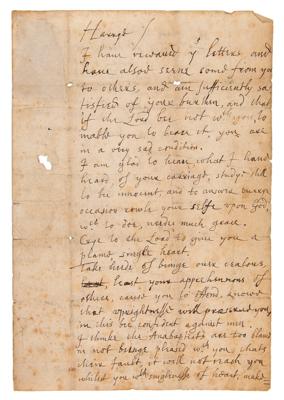 Harry /
I have receaved yr letters and
have alsoe seene some from you
to others, and am sufficiently sa-
tisfied of your burthen, and that
if the Lord bee not with you, to
inable you to beare it you are
in a very sad condition.
I am glad to hear what I have
heard of your carriage, studye still
to be innocent, and to answer every
occasion rowle your selfe upon God,
wch to doe, needs much grace.
Crye to the Lord to give you a
plaine single heart.
Take heede of beinge over-jealous,
least your apprehensions of
others, cause you to offend, knowe
that uprightnesse will preserve you,
in this bee confident against men.
I thinke the Anabaptists are too blame
in not beinge pleased with you, thats
their fault, it will not reach you
whilst you with singlenesse of heart, make